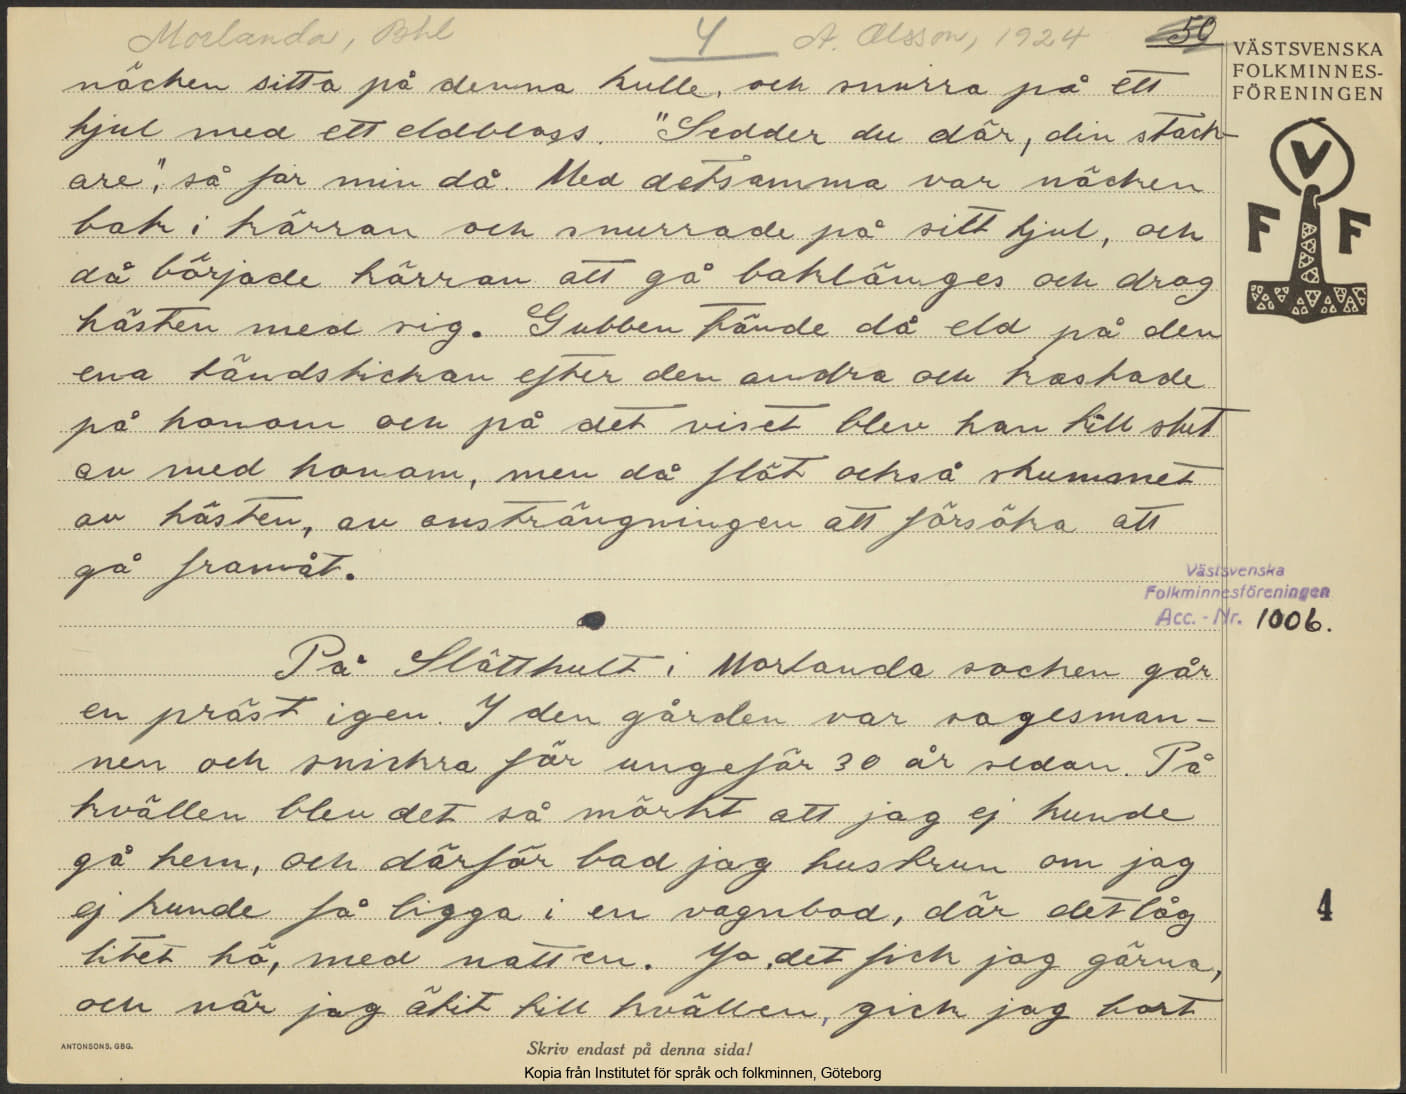 Morlanda, Bhl 4 A. Olsson, 1924 50
VÄSTSVENSKA
FOLKMINNES-
FÖRENINGEN
näcken sitta på denna kulle, och snurra på ett
hjul med ett eldbloss. "Sedder du där, din stack-
are", så far min då. Med detsamma var näcken
bak i kärran och snurrade på sitt hjul, och
då började kärran att gå baklänges och drog
hästen med sig. Gubben tände då eld på den
ena tändstickan efter den andra och kastade
på honom och på det viset blev han till slut
av med honom, men då flöt också skummet
av hästen, av ansträngningen att försöka att
gå framåt.
V
F F
Västsvenska
Folkminnesföreningen
Acc. - Nr. 1006.
På Slätthult i Morlanda socken går
en präst igen. I den gården var sagesman-
nen och snickra för ungefär 30 år sedan. På
kvällen blev det så mörkt att jag ej kunde
gå hem, och därför bad jag hustrun om jag
ej kunde få ligga i en vagnbod, där det låg
litet hö, med natten. Ja, det fick jag gärna,
och när jag ätit till kvällen, gick jag bort
4
ANTONSONS, GBG.
Skriv endast på denna sida!
Kopia från Institutet för språk och folkminnen, Göteborg